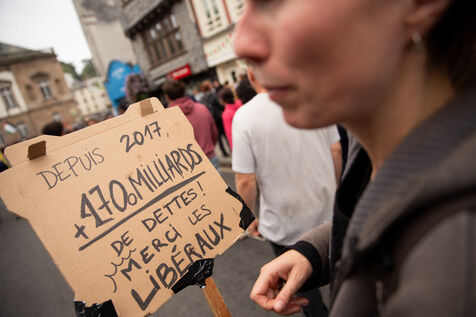 DEPUIS 2017
+ 170.MILLIARDS
DE DETTES !
MERCI LES
LIBÉRAUX